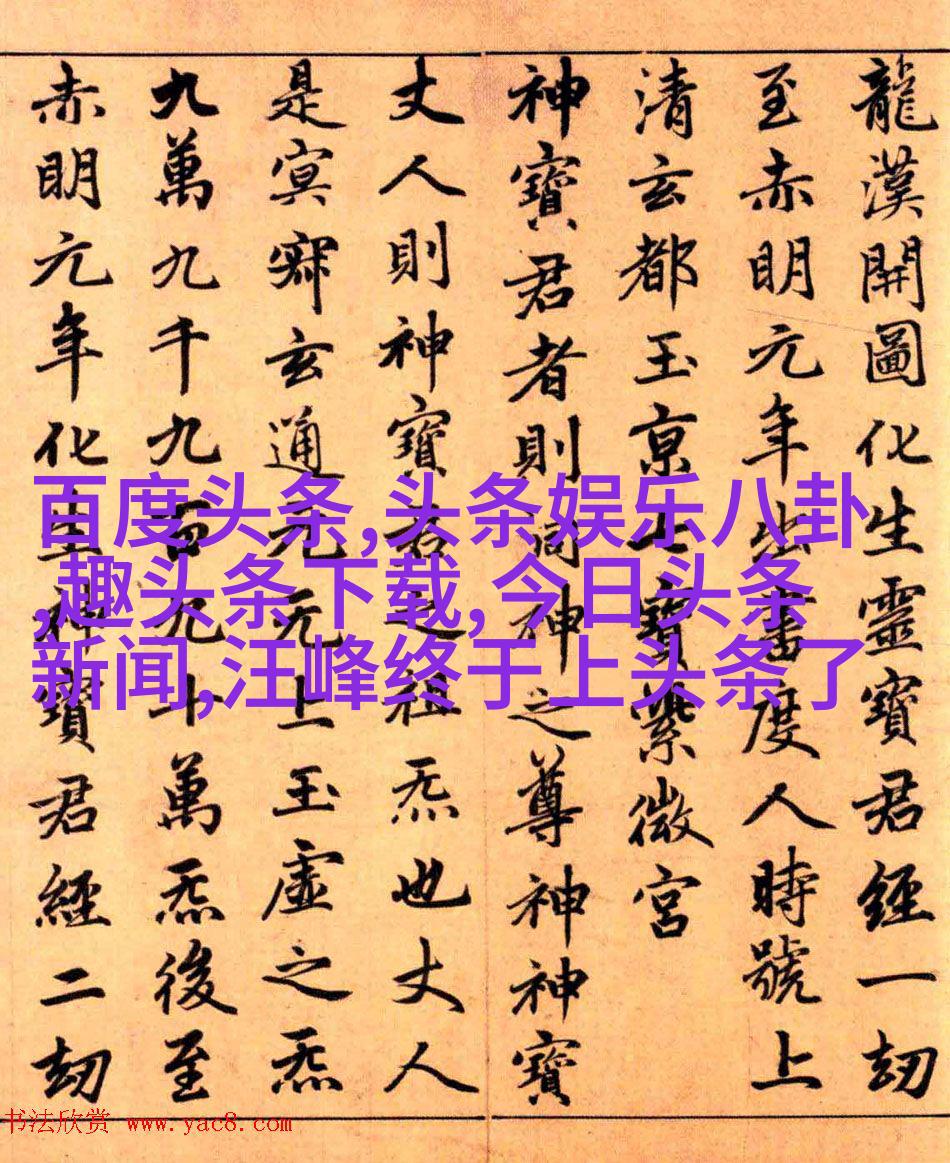 龍漢開圖化生靈寶君經一劫
至赤明元年出書度人時號上
清玄都玉京七寶紫微宮
神寶君者則洞神之尊神神寶
丈人則神寶君之祖炁也丈人
是寘寂玄通元无上玉虛之炁
九萬九千九百九十萬炁後至
赤明元年化生神寶君經二劫
百度头条,头条娱乐八卦
,趣头条下载,今日头条
新闻,汪峰终于上头条了
书法欣赏 www.yac8.com